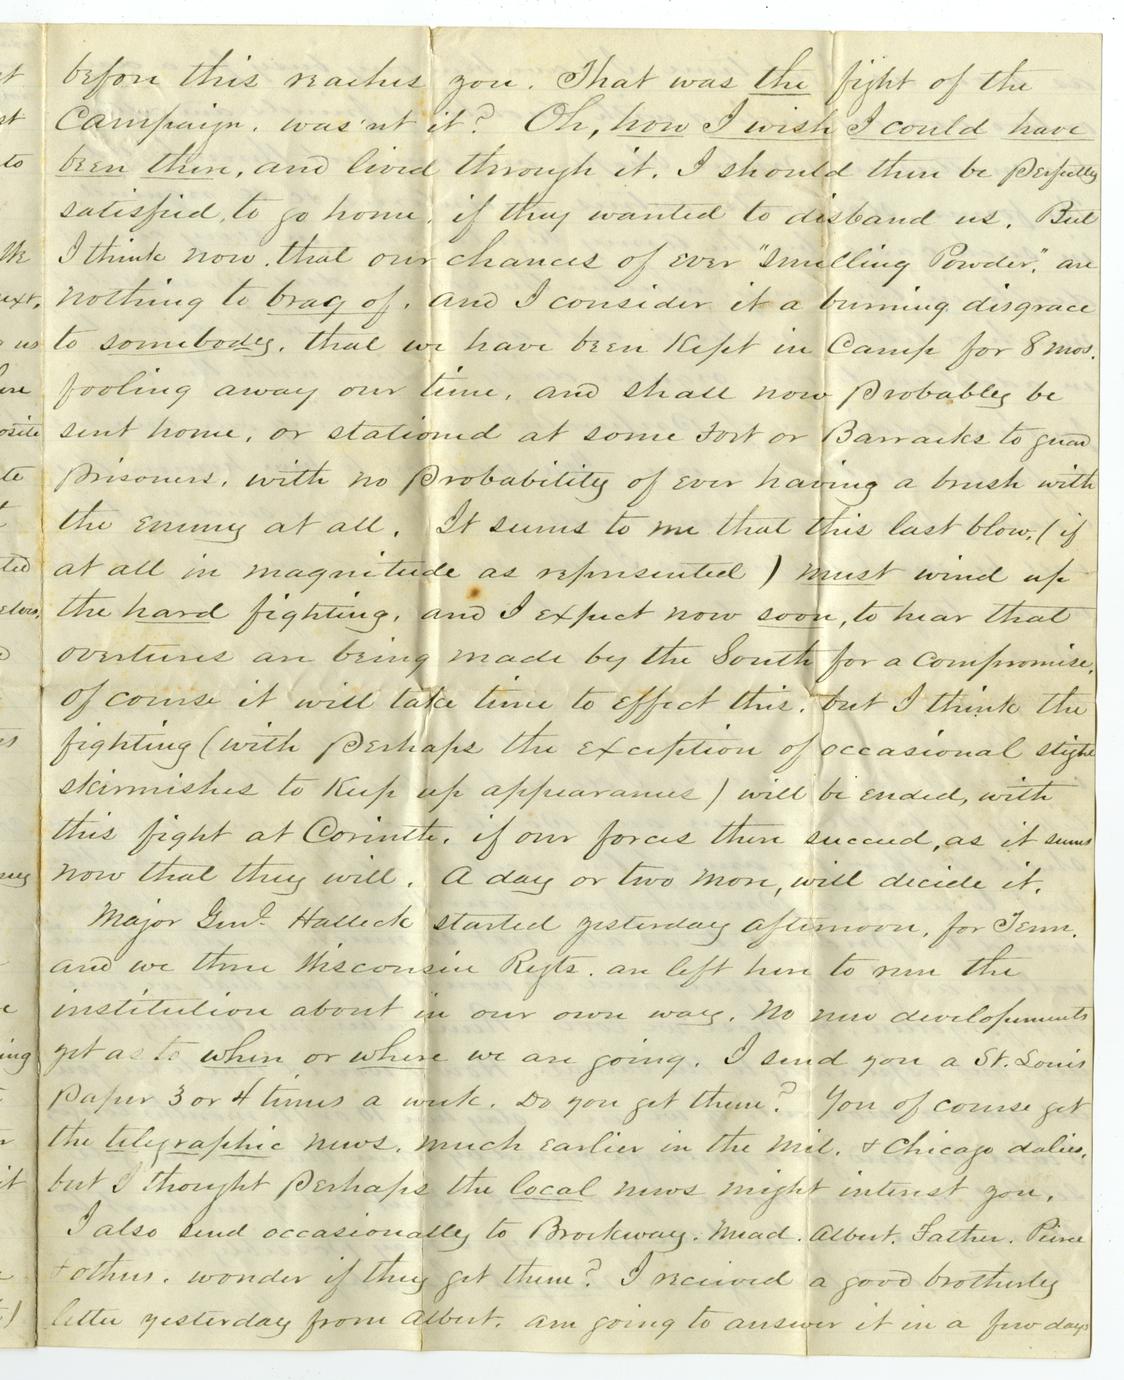 before this reaches you. That was the fight of the
Campaign. was'nt it? Oh, how I wish I could have
been there, and lived through it. I should then be perfectly
satisfied, to go home, if they wanted to disband us. But
I think now that our chances of ever "smelling Powder", are
nothing to brag of. and I consider it a burning disgrace
to somebody, that we have been kept in Camp for 8 mos.
fooling away our time, and shall now probably be
sent home, or stationed at some Fort or Barracks to guard
prisoners, with no probability of ever having a brush with
the enemy at all. It seems to me that this last blow, (if
at all in magnitude as represented) must wind up
the hard fighting, and I expect now soon, to hear that
overtures are being made by the South for a compromise,
of course it will take time to effect this, but I think the
fighting (with perhaps the exception of occasional slight
skirmishes to keep up appearances) will be ended, with
this fight at Corinth, if our forces there succeed, as it seems
now that they will. A day or two more, will decide it.
Major Genl. Halleck started yesterday afternoon, for Tenn.
and we three Wisconsin Regts. are left here to run the
institution about in our own way. No new developements
yet as to when or where we are going. I send you a St. Louis
paper 3 or 4 times a week. Do you get them? You of course get
the telegraphic news, much earlier in the Mil. & Chicago dalies,
but I thought perhaps the local news might interest you.
I also send occasionally to Brockway. Mead. Albert. Father. Peirce
& others. wonder if they get them? I received a good brotherly
letter yesterday from Albert. am going to answer it in a few days